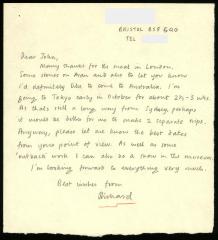 BRISTOL BS8
TEL
Dear John,
Many thanks for the meal in London.
Some stones on Aran and also to let you know
I'd definitely like to come to Australia. I'm
going to Tokyo early in October for about 2½-3 wks.
As that's still a long way from Sydney perhaps
it would be better for me to make 2 separate trips.
Anyway, please let me know the best dates
from your point of view. As well as some
outback work I can also be a show in the museum.
I'm looking forward to everything very much.
Best wishes from
Richard